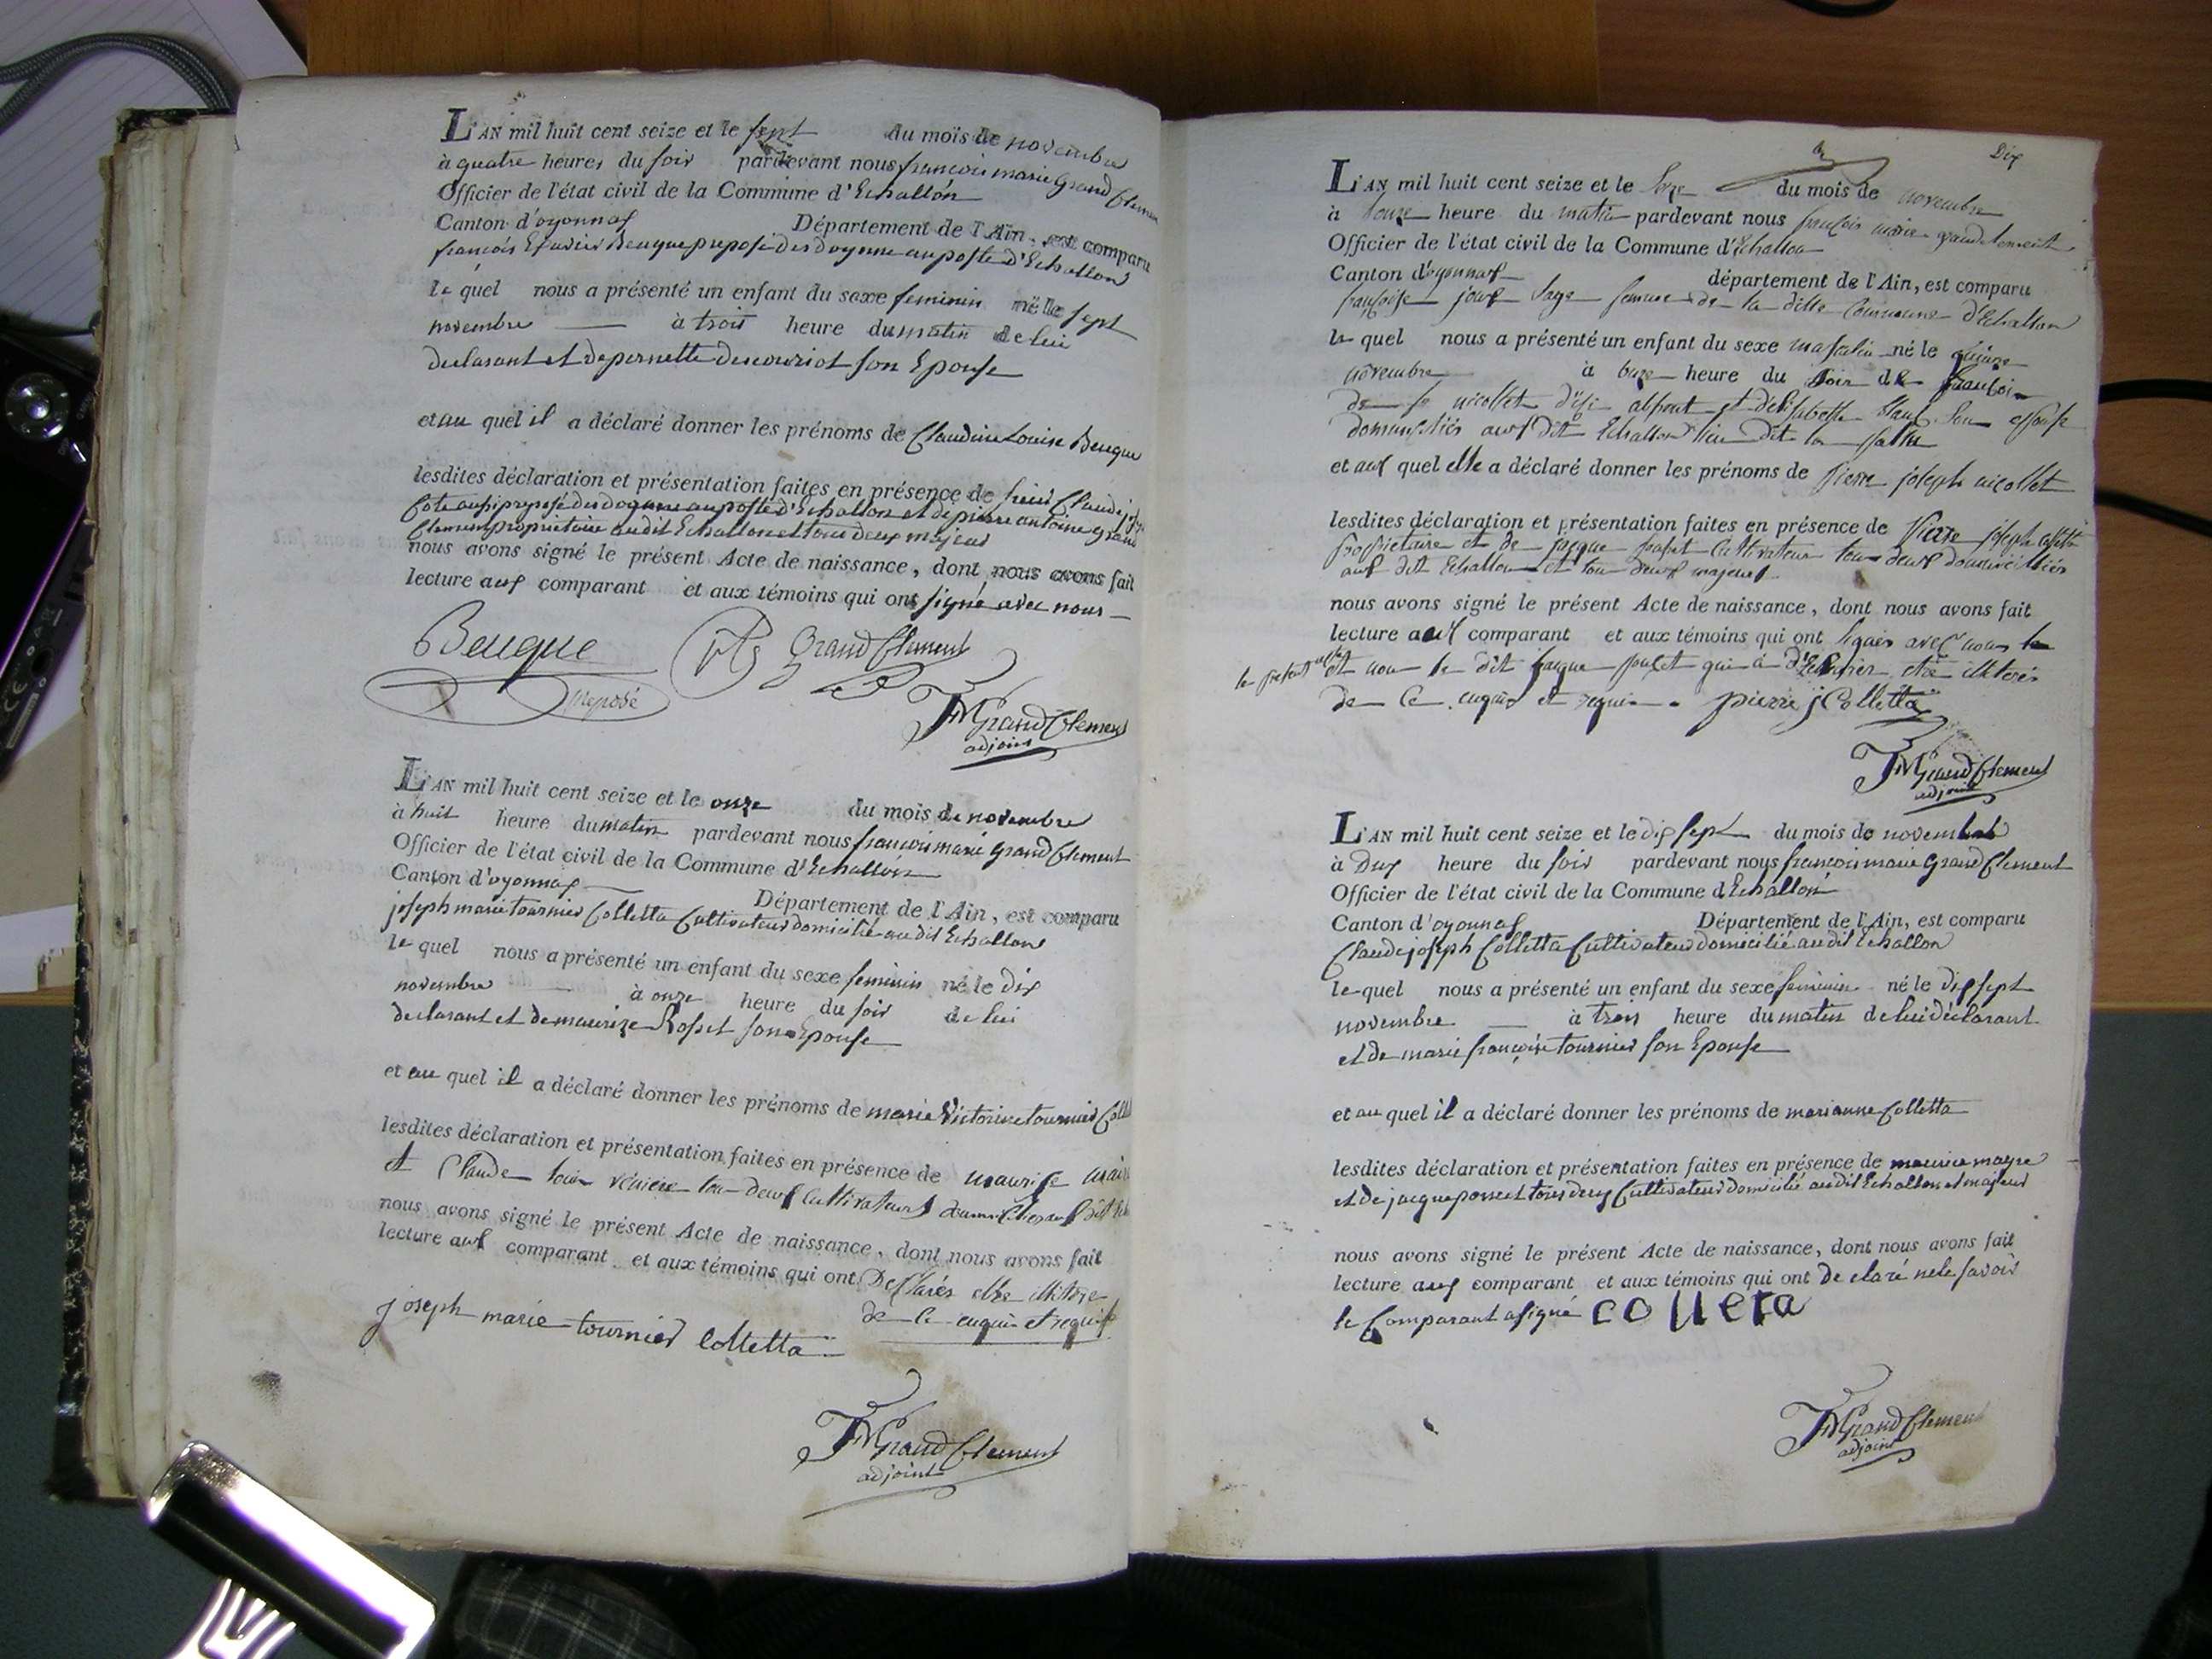 L'AN mil huit cent seize et le sept du mois de novembre
à quatre heures du soir pardevant nous francois marie Grand Clement
Officier de l'état civil de la Commune d'Echallon
Canton d'oyonnax Département de l'Ain, est comparu
francois Beuque preposé des doyanne au poste d'Echallon
le quel nous a présenté un enfant du sexe feminin né le sept
novembre à trois heure du matin de lui
declarant et de pernette son Epouse
et au quel il a déclaré donner les prénoms de Claudine Louise Beuque
lesdites déclaration et présentation faites en présence de
aussi preposé des doyanne au poste d'Echallon et de pierre antoine grand
Clement proprietaire audit Echallon et tous deux majeur
nous avons signé le présent Acte de naissance, dont nous avons fait
lecture aux comparant et aux témoins qui ont signé avec nous
Beuque Grand Clement
preposé
FMGrandClement
adjoint
L'AN mil huit cent seize et le onze du mois de novembre
à huit heure du matin pardevant nous francois marie Grand Clement
Officier de l'état civil de la Commune d'Echallon
Canton d'oyonnax Département de l'Ain, est comparu
joseph marie tournier Colletta Cultivateur domicilié audit Echallon
le quel nous a présenté un enfant du sexe feminin né le dix
novembre à onze heure du soir de lui
declarant et de maurize Rosset son Epouse
et au quel il a déclaré donner les prénoms de marie Victorine tournier
lesdites déclaration et présentation faites en présence de maurise
et Claude tou deux Cultivateurs
nous avons signé le présent Acte de naissance, dont nous avons fait
lecture aux comparant et aux témoins qui ont Desclarés etre illitere
de ce enquis et requis
joseph marie tournier colletta
FMGrandClement
adjoint
Dix
L'AN mil huit cent seize et le Seize du mois de novembre
à heure du matin pardevant nous francois marie grandclement
Officier de l'état civil de la Commune d'Echallon
Canton d'oyonnax département de l'Ain, est comparu
françoise sage femme de la ditte Commune d'Echallon
le quel nous a présenté un enfant du sexe masculin né le quinze
novembre à heure du soir de
de nicollet absent et d'elisabeth son epouse
dit Echallon lieu dit la
et aux quel elle a déclaré donner les prénoms de Pierre joseph nicollet
lesdites déclaration et présentation faites en présence de Pierre joseph
propriétaire et de jacque cultivateur tous deux domiciliés
aux dit Echallon et tou deux majeurs
nous avons signé le présent Acte de naissance, dont nous avons fait
lecture aux comparant et aux témoins qui ont signés avec nous
le present acte et non le dit jacque qui a etre illiterés
de ce enquis et requis. pierre j Colletta
FMGrandClement
adjoint
L'AN mil huit cent seize et le dix sept du mois de novembre
à Dux heure du soir pardevant nous francois marie Grand Clement
Officier de l'état civil de la Commune d'Echallon
Canton d'oyonnax Département de l'Ain, est comparu
Claude joseph Colletta Cultivateur domicilié audit Echallon
le quel nous a présenté un enfant du sexe feminin né le dix sept
novembre à trois heure du matin de lui déclarant
et de marie françoise tournier son Epouse
et au quel il a déclaré donner les prénoms de marianne Colletta
lesdites déclaration et présentation faites en présence de maurice
et de jacque tous deux Cultivateur domicilié audit Echallon et majeur
nous avons signé le présent Acte de naissance, dont nous avons fait
lecture aux comparant et aux témoins qui ont de claré ne le savoir
le Comparant a signé colleta
FMGrandClement
adjoint